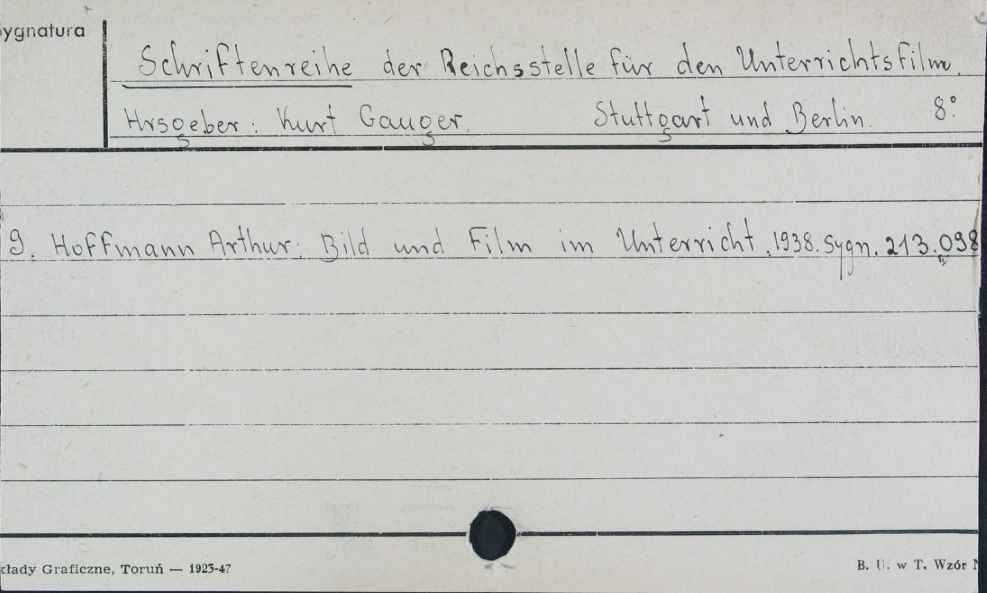 ygnatura
Schriftenreihe der Reichsstelle für den Unterrichtsfilm.
Hrsgeber: Kurt Gauger. Stuttgart und Berlin. 8°
9. Hoffmann Arthur: Bild und Film im Unterricht. 1938. Sygn. 213.098
kłady Graficzne, Toruń — 1925-47
B. U. w T. Wzór N